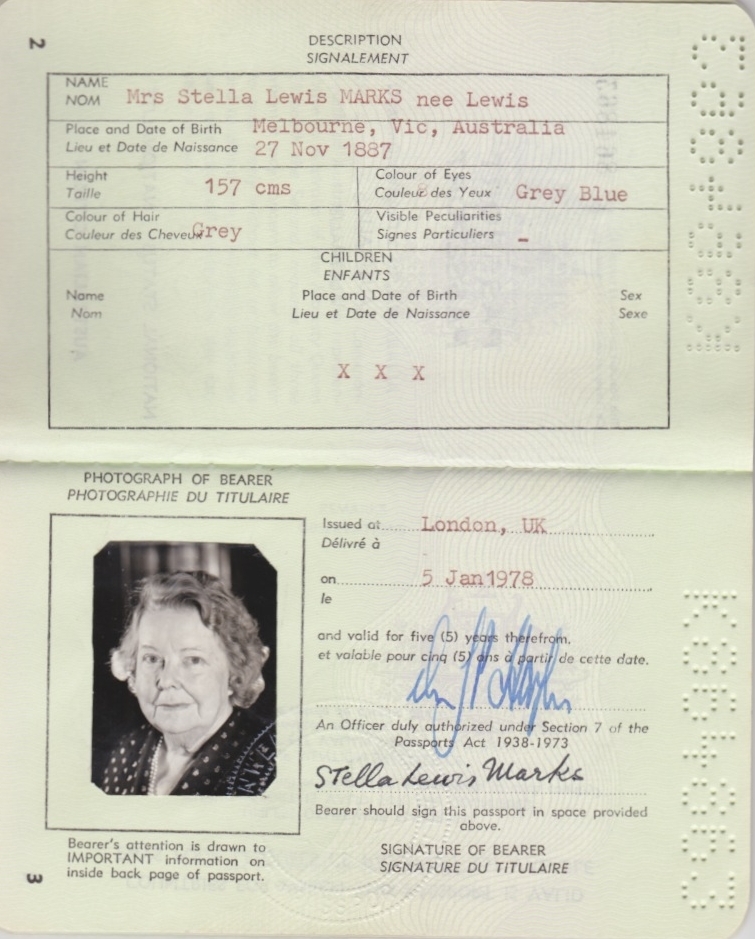 2
DESCRIPTION
SIGNALEMENT
NAME
NOM Mrs Stella Lewis MARKS nee Lewis
Place and Date of Birth Melbourne, Vic, Australia
Lieu et Date de Naissance 27 Nov 1887
Height Colour of Eyes
Taille 157 cms Couleur des Yeux Grey Blue
Colour of Hair Visible Peculiarities
Couleur des Cheveux Grey Signes Particuliers -
CHILDREN
ENFANTS
Name Place and Date of Birth Sex
Nom Lieu et Date de Naissance Sexe
X X X
PHOTOGRAPH OF BEARER
PHOTOGRAPHIE DU TITULAIRE
Issued at London, UK
Délivré à
on 5 Jan 1978
le
and valid for five (5) years therefrom.
et valable pour cinq (5) ans à partir de cette date.
An Officer duly authorized under Section 7 of the
Passports Act 1938-1973
Stella Lewis Marks
Bearer should sign this passport in space provided
above.
SIGNATURE OF BEARER
SIGNATURE DU TITULAIRE
Bearer's attention is drawn to
IMPORTANT information on
inside back page of passport.
3